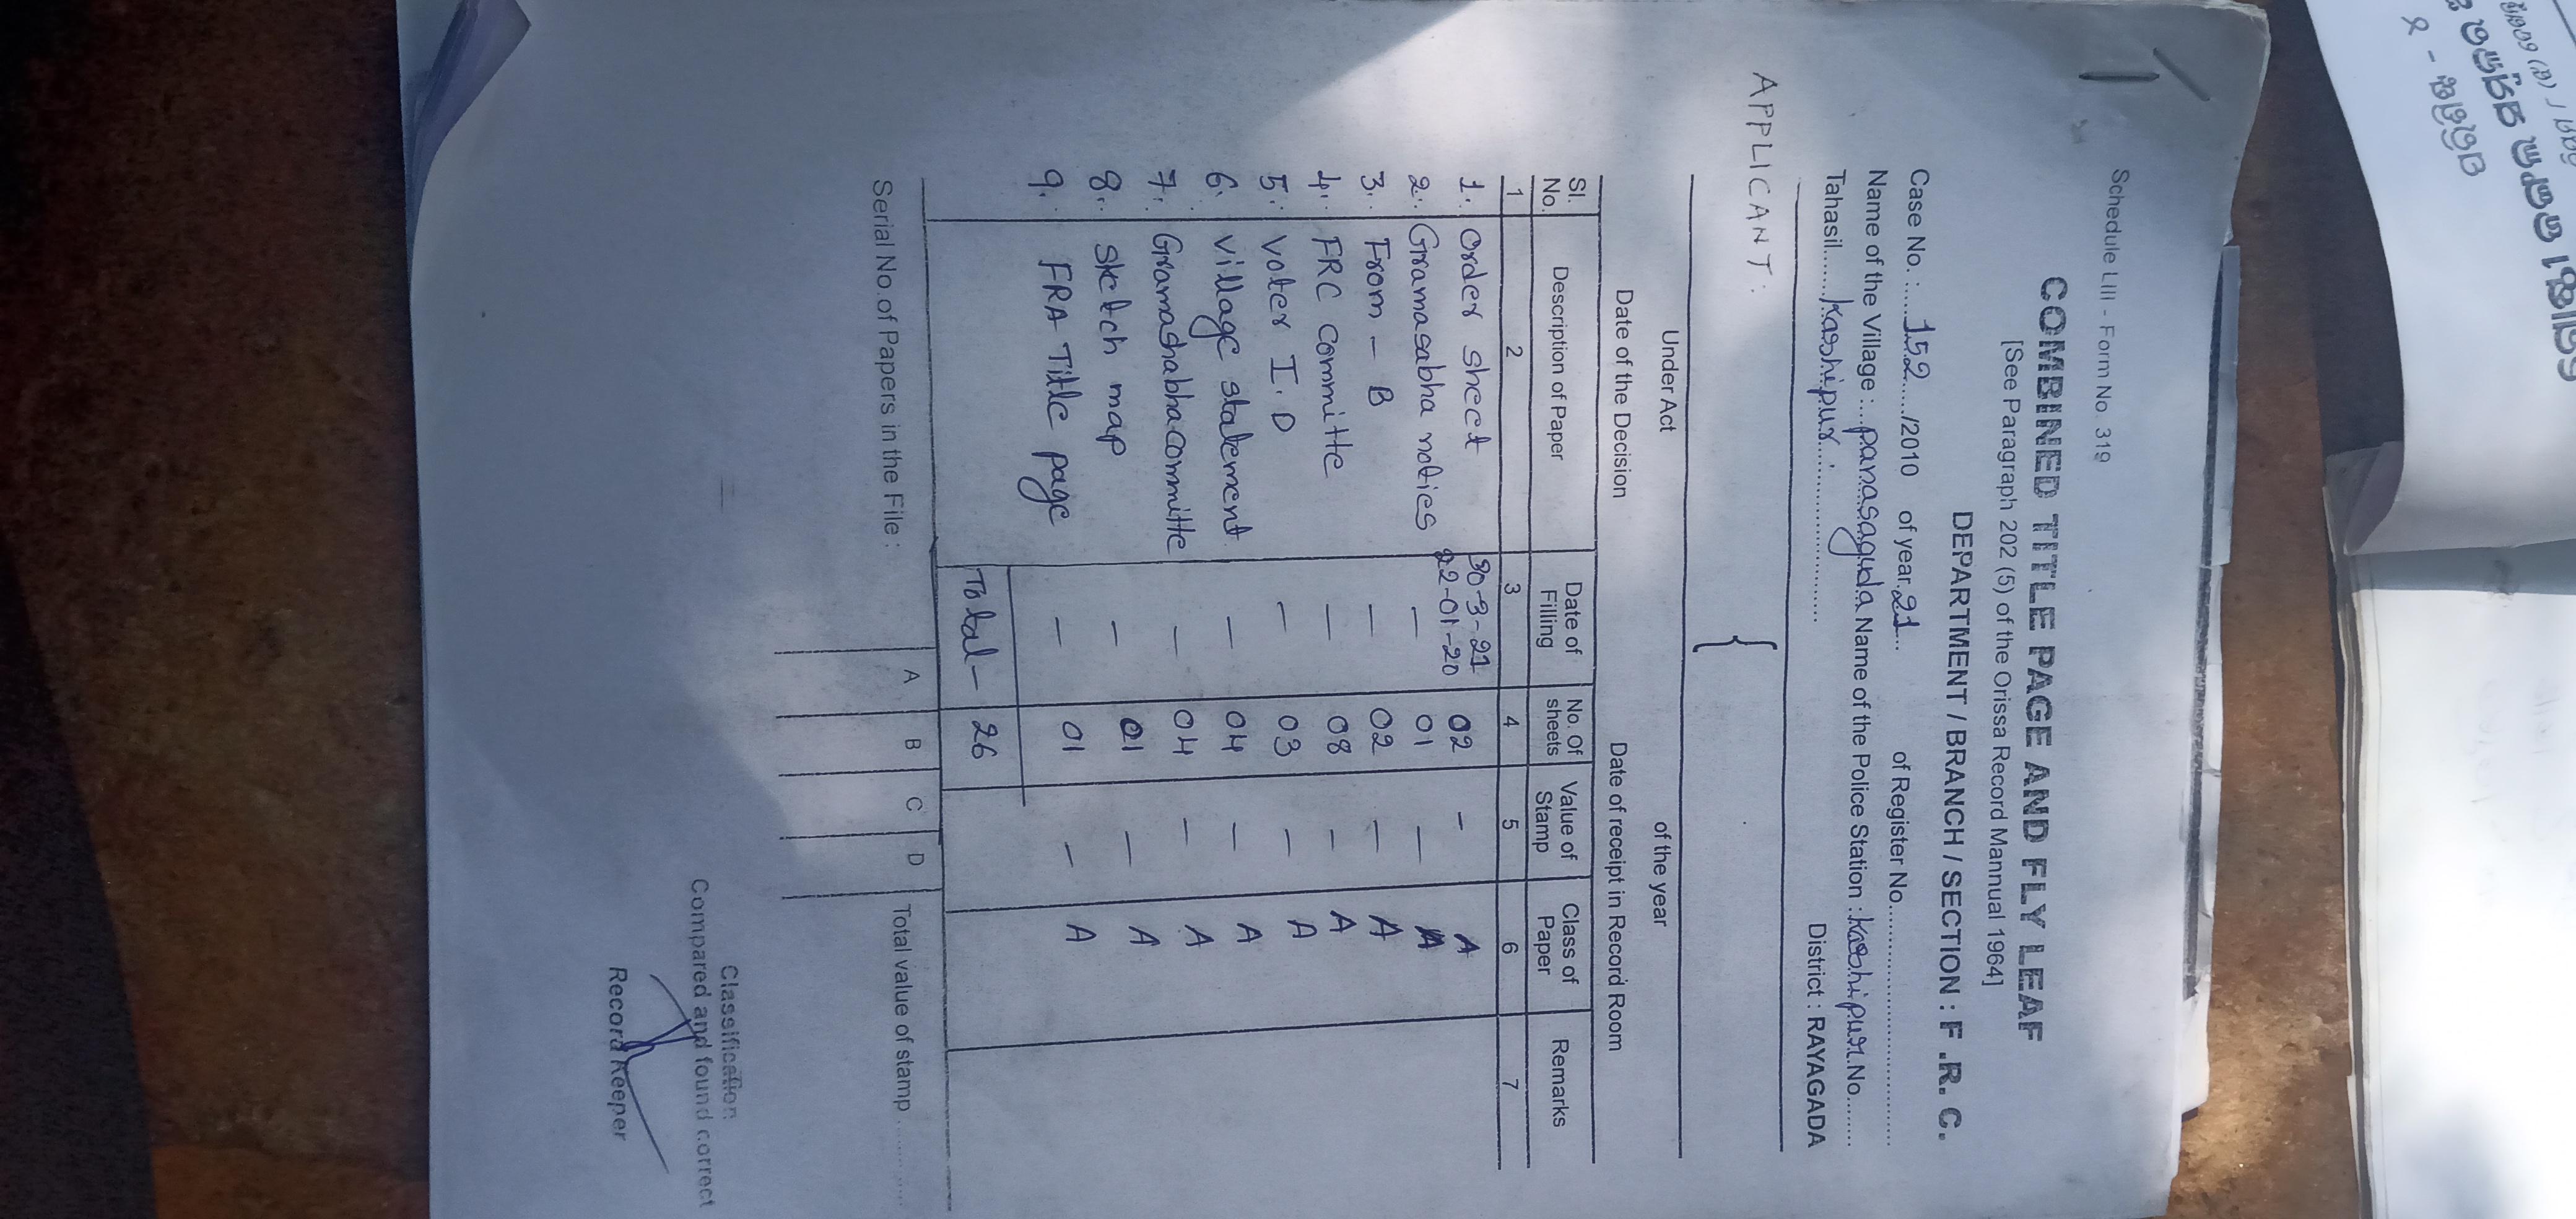 Schedule LIII - Form No. 319
COMBINED TITLE PAGE AND FLY LEAF
[See Paragraph 202 (5) of the Orissa Record Mannual 1964]
DEPARTMENT / BRANCH / SECTION : F .R. C.
Case No. : 152 /2010 of year 21 of Register No.
Name of the Village : parasaguda Name of the Police Station : kashipur No
Tahasil kashipur District : RAYAGADA
APPLICANT :
{
Under Act of the year
Date of the Decision Date of receipt in Record Room
Sl. No. Description of Paper Date of Filling No. Of sheets Value of Stamp Class of Paper Remarks
1 2 3 4 5 6 7
1. Order sheet 30-3-21 02 - A
2. Gramasabha noties 22-01-20 — 01 — A
3. From - B — 02 — A
4. FRC Committe — 08 — A
5. Voter I.D — 03 — A
6. village statement — 04 — A
7. Gramashabha committe — 04 — A
8. sketch map — 01 — A
9. FRA Title page — 01 — A
Total - 26
Serial No. of Papers in the File : A B C D Total value of stamp
Classification
Compared and found correct
Record Keeper